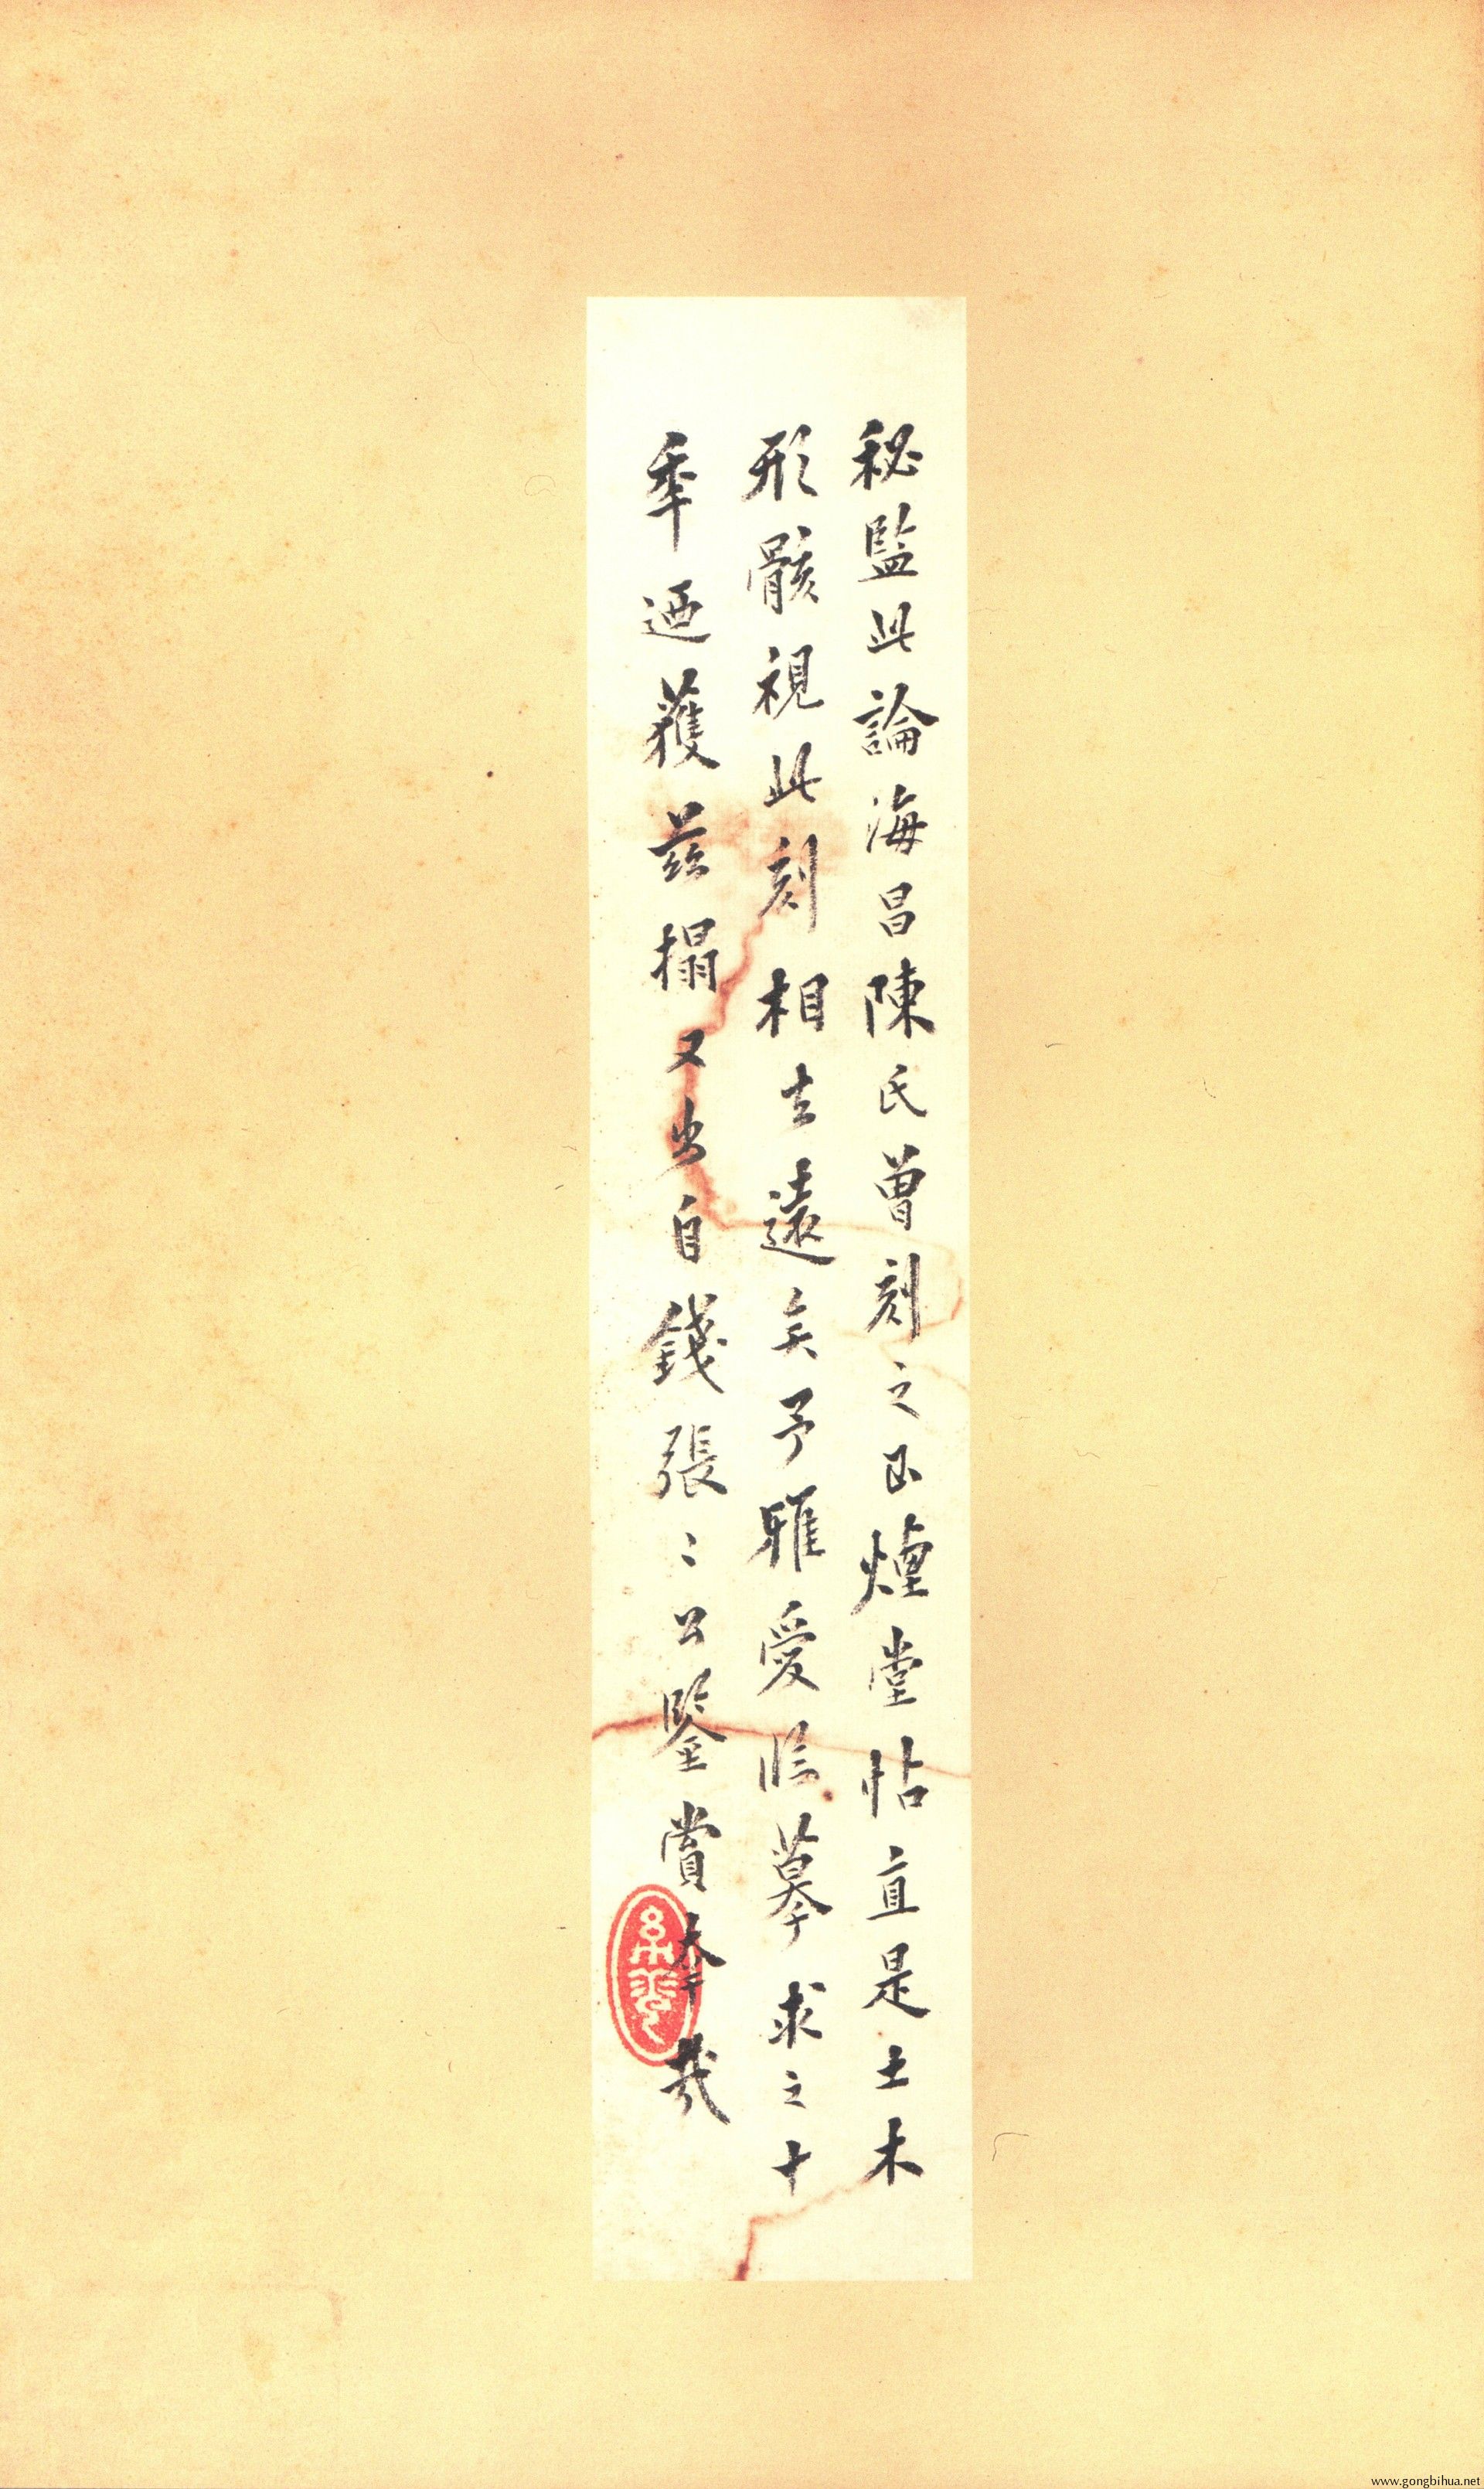 秘監此論海昌陳氏曾刻之玉煙堂帖直是土木
形骸視此刻相去遠矣予雅愛臨摹求之十
年迺獲茲搨又出自錢張二公鑒賞幸哉
www.gongbihua.net